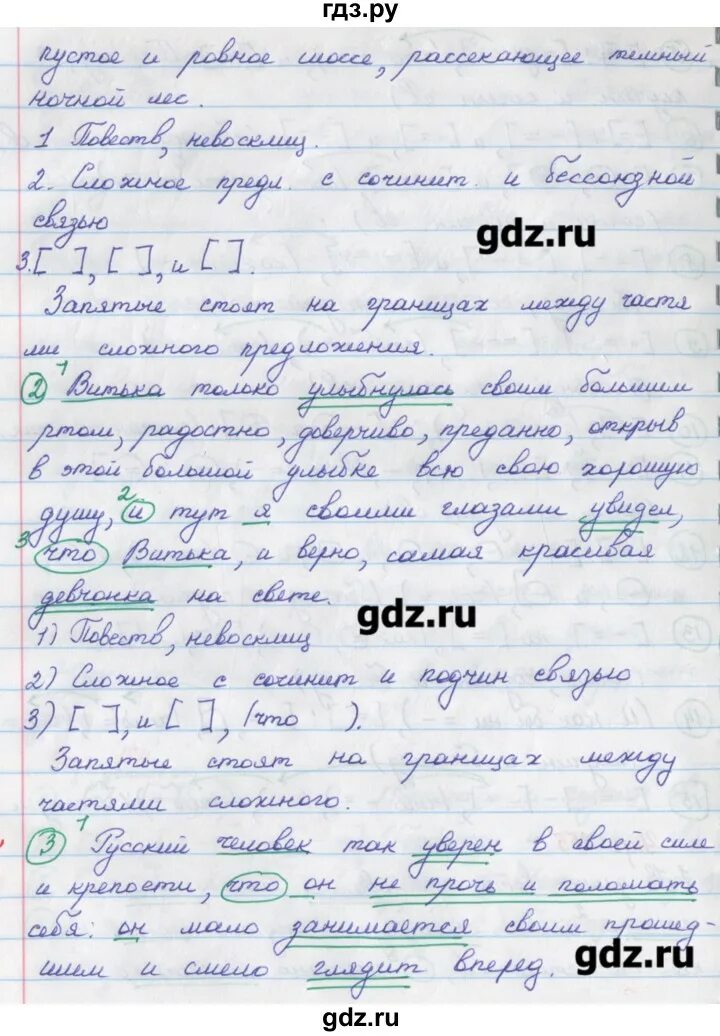 гдз.ру
пустое и ровное шоссе, рассекающее темный
ночной лес.
1 Повеств, невосклиц.
2. Сложное предл. с сочинит. и бессоюзной
связью
gdz.ru
3. [ ], [ ], и [ ].
Запятые стоят на границах между частя
ми сложного предложения.
1
2 Витька только улыбнулась своим большим
ртом, радостно, доверчиво, преданно, открыв
в этой большой улыбке всю свою хорошую
2
душу, и тут я своими глазами увидел,
3 что Витька, и верно, самая красивая
девчонка на свете.
gdz.ru
1) Повеств, невосклиц
2) Сложное с сочинит и подчин связью
3) [ ], и [ ], (что ).
Запятые стоят на границах между
частями сложного.
1
3 Русский человек так уверен в своей силе
и крепости, что он не прочь и поломать
себя: он мало занимается своим прошед-
шим и смело глядит вперед.
gdz.ru
gdz.ru